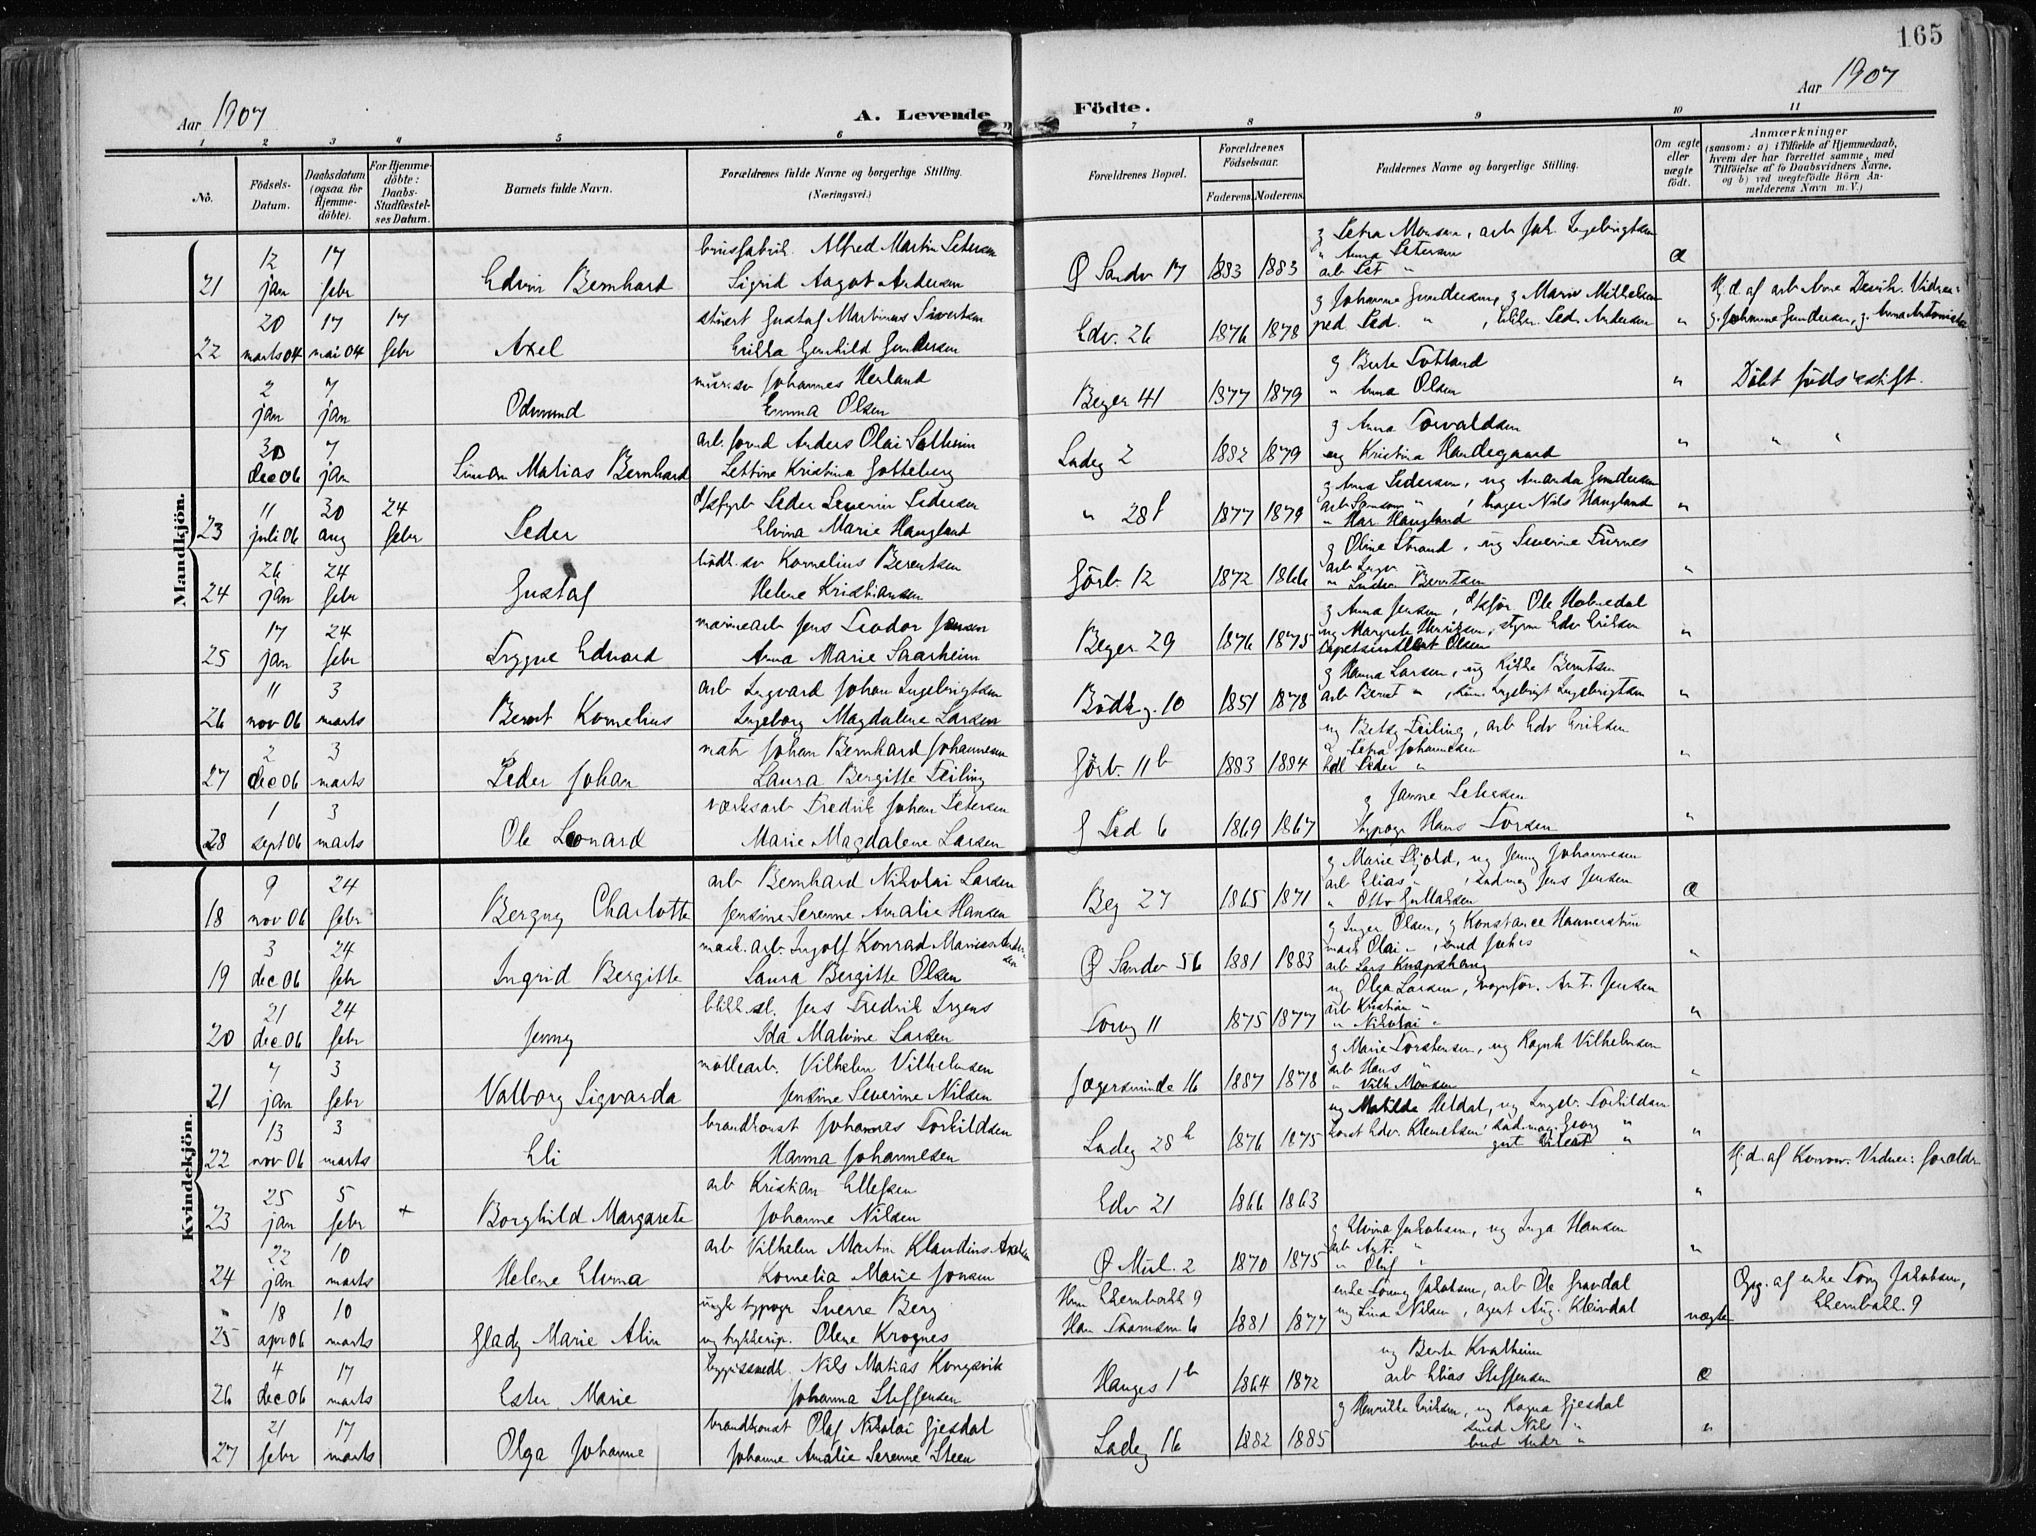 165
Aar 1907
A. Levende Födte.
Aar 1907
1 2 3 4 5 6 7 8 9 10 11
No.
Födsels-Datum.
Daabsdatum (ogsaa for Hjemme-döbte).
For Hjemme-döbte: Daabs-Stadfæstel-ses Datum.
Barnets fulde Navn.
Forældrenes fulde Navne og borgerlige Stilling. (Næringsvei.)
Forældrenes Bopæl.
Forældrenes Födselsaar.
Faderens. Moderens.
Faddernes Navne og borgerlige Stilling.
Om ægte eller uægte födt.
Anmærkninger (saasom: a) i Tilfælde af Hjemmedaab, hvem der har forrettet samme, med Tilföielse af to Daabsvidners Navne, og b) ved uægtefödte Börn Anmelderens Navn m. V.)
Mandkjön.
21 12 jan 17 febr Edvin Bernhard brusfabrik. Alfred Martin Petersen
Sigrid Aagot Andersen Ø Sandv 17 1883 1883 g Petra Monsen, arb Joh. Ingebrigtsen
" Anna Petersen
arb Pet " æ
22 20 marts 04 17 mai 04 17 febr Axel stuert Gustaf Martinus Sivertsen
Erikka Gunhild Gundersen Edv. 26 1876 1878 g Johanne Gundersen, g Marie Mikkelsen
" Hj. d. af arb Arne Vidner:
g. Johanne Gundersen, g. Anna
2 jan 7 jan Odmund mur.sv Johannes Herland
Emma Olsen Beger 41 1877 1879 g Berte Totland
" Anna Olsen " Döbt föds.stift.
30 dec 06 7 jan Simon Matias Bernhard arb.form Anders Olai Solheim
Lettine Kristina Gotteberg Ladeg 2 1882 1879 g Anna Torvaldsen
ug Kristina Handegaard " " "
23 11 juli 06 30 aug 24 febr Peder Peder Severin Pedersen
Elvina Marie Haugland " 28 f 1877 1879 g Anna Pedersen, ug Amanda Gundersen
arb Samson " , bager Nils Haugland
" Har Haugland "
24 26 jan 24 febr Gustaf bödk. sv Kornelius Berentsen
Helene Kristiansen Görb. 12 1872 1866 g Oline Strand, ug Severine Furnes
arb Ingv. "
" Berntsen "
25 17 jan 24 febr Trygve Edvard marinearb Jens Teodor Jensen
Anna Marie Saarheim Beger 29 1876 1875 g Anna Jensen, Ole Holmedal
ug Margrete Henriksen, styrm Edv Eriksen
Olsen "
26 11 nov 06 3 marts Bernt Kornelius arb Ingvard Johan Ingebrigtsen
Ingeborg Magdalene Larsen Bödkg. 10 1851 1878 g Hanna Larsen, ug Rikke Berntsen
arb Bernt " , Ingebrigt Ingebrigtsen "
27 2 dec 06 3 marts Peder Johan matr Johan Bernhard Johannesen
Laura Bergitte Feiling Görb. 11 b 1883 1884 ug Betsy Feiling, arb Edv Eriksen
g Petra Johannesen
hdl Peder " "
28 1 sept 06 3 marts Ole Leonard værksarb Fredrik Johan Petersen
Marie Magdalene Larsen G Ped 6 1869 1867 g Janne Petersen
typogr Hans Torsen "
Kvindekjön.
18 9 nov 06 24 febr Bergny Charlotte arb Bernhard Nikolai Larsen
Jensine Serenne Amalie Hansen Beg 27 1865 1871 g Marie Skjold, ug Jenny Johannesen
arb Elias " , sadmag Jens Jensen
" Otto Gulloksen æ
19 3 dec 06 24 febr Ingrid Bergitte mask. arb. Ingolf Konrad Marius Andersen
Laura Bergitte Olsen Ø Sandv 56 1881 1883 g Inger Olsen, g Konstance Hammerstrøm
mask Olai "
arb Lars Knapskaug "
20 21 dec 06 24 febr Jenny blikk.sl. Jens Fredrik Irgens
Ida Malvine Larsen Torvg 11 1875 1877 ug Olga Larsen, vognfor. Ant. Jensen
arb Kristian "
" Nikolai " "
21 7 jan 3 febr Valborg Sigvarda möllearb. Vilhelm Vilhelmsen
Jensine Severine Nilsen Jægersminde 16 1887 1878 g Marie Torstensen, ug Ragnh Vilhelmsen
arb Hans "
" Vilh Monsen "
22 13 nov 06 3 marts Eli brandkonst Johannes Torkildsen
Hanna Johannesen Ladeg 28 h 1876 1875 ug Matilde Heldal, ug Ingeb. Torkildsen
konst Edv. Klemetsen, sadmag. Georg "
gut " "
23 25 jan 5 febr + Borghild Margarete arb Kristian Ellefsen
Johanne Nilsen Edv 21 1866 1863 " Hj. d. af Vidner: forældr.
24 22 jan 10 marts Helene Elvina arb Vilhelm Martin Klaudius Axelsen
Kornelia Marie Jonsen Ø Mul. 2 1870 1875 g Elvina Jakobsen, ug Inga Hansen
arb Ant. "
" Oluf " "
25 18 apr 06 10 marts Glady Marie Alin ungk typogr Sverre Berg
ug trykkerip. Olene Krognes Hun Ekernbakk 9
Han Thormsm 6 1881 1877 enke Tomy Jakobsen, arb Ole Gravdal
ug Lina Nilsen, agent Aug. Kleivdal uægte Opg. af enke Tony Jakobsen,
Ekernbakk. 9
26 4 dec 06 17 marts Ester Marie bygnssmedk. Nils Matias Kongsvik
Johanna Steffensen Hauges 1 b 1864 1872 ug Berte Kvalheim
arb Elias Steffensen æ
27 21 febr 17 marts Olga Johanne brandkonst Olaf Nikolai Gjesdal
Johanne Amalie Serenne Steen Ladeg 16 1882 1885 g Henrikke Eriksen, ug Ragna Gjesdal
smed Nils "
bud Andr " "